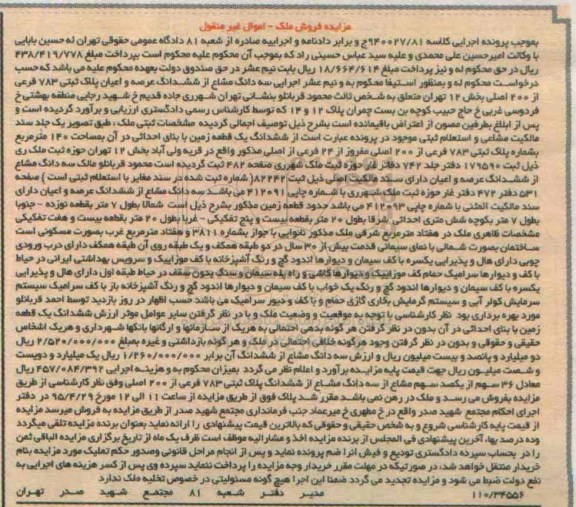 مزایده فروش ملک - اموال غیر منقول
بموجب پرونده اجرایی کلاسه 940027/81ج و برابر دادنامه و اجراییه صادره از شعبه 81 دادگاه عمومی حقوقی تهران له حسین بابایی
با وکالت امیرحسین علی محمدی و علیه سید عباس حسینی راد که بموجب آن محکوم علیه محکوم است بپرداخت مبلغ 438/419/778
ریال در حق محکوم له و نیز پرداخت مبلغ 18/664/614 ریال بابت نیم عشر در حق صندوق دولت بعهده محکوم علیه می باشد که حسب
درخواست محکوم له و بمنظور استیفا محکوم به و نیم عشر اجرایی سه دانگ مشاع از ششدانگ عرصه و اعیان پلاک ثبتی 783 فرعی
از 200 اصلی بخش 12 تهران متعلق به شخص ثالث محمود قربانلو بنشانی تهران شهرری جاده قدیم خ شهید رجایی منطقه بهشتی خ
فردوسی غربی خ حاج حبیب کوچه بن بست چمران پلاک 12 و 14 که توسط کارشناس رسمی دادگستری ارزیابی و برآورد گردیده است و
پس از ابلاغ بطرفین مصون از اعتراض باقیمانده است بشرح ذیل توصیف اجمالی گردیده مشخصات ثبتی ملک: طبق تصویر یک جلد سند
مالکیت مشاعی و استعلام ثبتی موجود در پرونده عبارت است از ششدانگ یک قطعه زمین با بنای احداثی در آن بمساحت 140 مترمربع
بشماره پلاک ثبتی 783 فرعی از 200 اصلی مفروز از 24 فرعی از اصلی مذکور واقع در قریه ولی آباد بخش 12 تهران حوزه ثبت ملک ری
ذیل ثبت 179590 دفتر جلد 742 دفاتر غار حوزه ثبت ملک شهرری صفحه 482 ثبت گردیده است محمود قربانلو مالک سه دانگ مشاع
از ششدانگ عرصه و اعیان دارای سند مالکیت اصلی ذیل ثبت 82242 (شماره ثبت شده در سند مغایر با استعلام ثبتی است) صفحه
531 دفتر 472 دفتر غار حوزه ثبت ملک شهرری با شماره چاپی 412091 می باشد سه دانگ مشاع از ششدانگ عرصه و اعیان دارای
سند مالکیت المثنی با شماره چاپی 412093 می باشد حدود قطعه زمین مذکور بشرح ذیل است شمالا بطول 7 متر بقطعه نوزده - جنوبا
بطول 7 متر بکوچه شش متری احداثی شرقا بطول 20 متر بقطعه بیست و پنج تفکیکی - غربا بطول 20 متر بقطعه بیست و هفت تفکیکی
مشخصات ظاهری ملک در هفتاد مترمربع شرقی ملک مذکور نانوایی با جواز بشماره 3811 و هفتاد مترمربع غرب بصورت مسکونی است
ساختمان بصورت شمالی با نمای سیمانی قدمت بیش از 30 سال در دو طبقه همکف و یک طبقه روی آن طبقه همکف دارای درب ورودی
چوبی دارای هال و پذیرایی یکسره با کف سیمان و دیوارها اندود گچ و رنگ آشپزخانه با کف موزاییک و سرویس بهداشتی ایرانی در حیاط
با کف و دیوارها سرامیک حمام کف موزاییک و دیوارها کاشی و راه پله سیمان و سنگ بدون سقف در حیاط طبقه اول دارای هال و پذیرایی
یکسره با کف سیمان و دیوارها اندود گچ و رنگ یک خواب با کف سیمان و دیوارها اندود گچ و رنگ آشپزخانه باز با کف سرامیک سیستم
سرمایش کولر آبی و سیستم گرمایش بخاری گازی حمام و با کف و دیوار سرامیک می باشد حسب اظهار در روز بازدید توسط احمد قربانلو
مورد بهره برداری بود نظر کارشناسی با توجه به موقعیت و وضعیت ملک و با در نظر گرفتن سایر عوامل موثر ارزش ششدانگ یک قطعه
زمین با بنای احداثی در آن بدون در نظر گرفتن هر گونه بدهی احتمالی به هریک از سازمانها و ارگانها بانکها شهرداری و هریک اشخاص
حقیقی و حقوقی و بدون در نظر گرفتن وجود هرگونه خلافی احتمالی در ملک و هر گونه بازداشتی و غیره بمبلغ 2/520/000/000 ریال
دو میلیارد و پانصد و بیست میلیون ریال و ارزش سه دانگ مشاع از ششدانگ آن برابر 1/260/000/000 ریال یک میلیارد و دویست
و شصت میلیون ریال جهت قیمت پایه مزایده برآورد و اعلام نظر می گردد بمیزان محکوم به و هزینه اجرایی 457/084/392 ریال
معادل 36 سهم از یکصد سهم مشاع از سه دانگ مشاع از ششدانگ پلاک ثبتی 783 فرعی از 200 اصلی وفق نظر کارشناسی از طریق
مزایده بفروش می رسد و ملک در رهن نمی باشد مقرر شد پلاک فوق از طریق مزایده از ساعت 11 الی 12 مورخ 95/4/29 در دفتر
اجرای احکام مجتمع شهید صدر واقع در خ مطهری خ میرعماد جنب فرمانداری مجتمع شهید صدر از طریق مزایده به فروش میرسد مزایده
از قیمت پایه کارشناسی شروع و به شخص حقیقی و حقوقی که بالاترین قیمت پیشنهادی را ارائه نماید بعنوان برنده مزایده تلقی میگردد
وده درصد بها، آخرین پیشنهادی فی المجلس از برنده مزایده اخذ و مشارالیه موظف است ظرف یک ماه از تاریخ برگزاری مزایده الباقی ثمن
را در بحساب سپرده دادگستری تودیع و فیش آنرا ضم پرونده نماید و پس از انجام مراحل قانونی وصدور حکم تملیک مورد مزایده بنام
خریدار منتقل خواهد شد، در صورتیکه در مهلت مقرر خریدار وجه مزایده را پرداخت ننماید سپرده وی پس از کسر هزینه های اجرایی به
نفع دولت ضبط می شود و مزایده تجدید می گردد ضمنا این اجرا هیچ گونه مسئولیتی در خصوص تخلیه ملک ندارد
110/34556 مدیر دفتر شعبه 81 مجتمع شهید صدر تهران